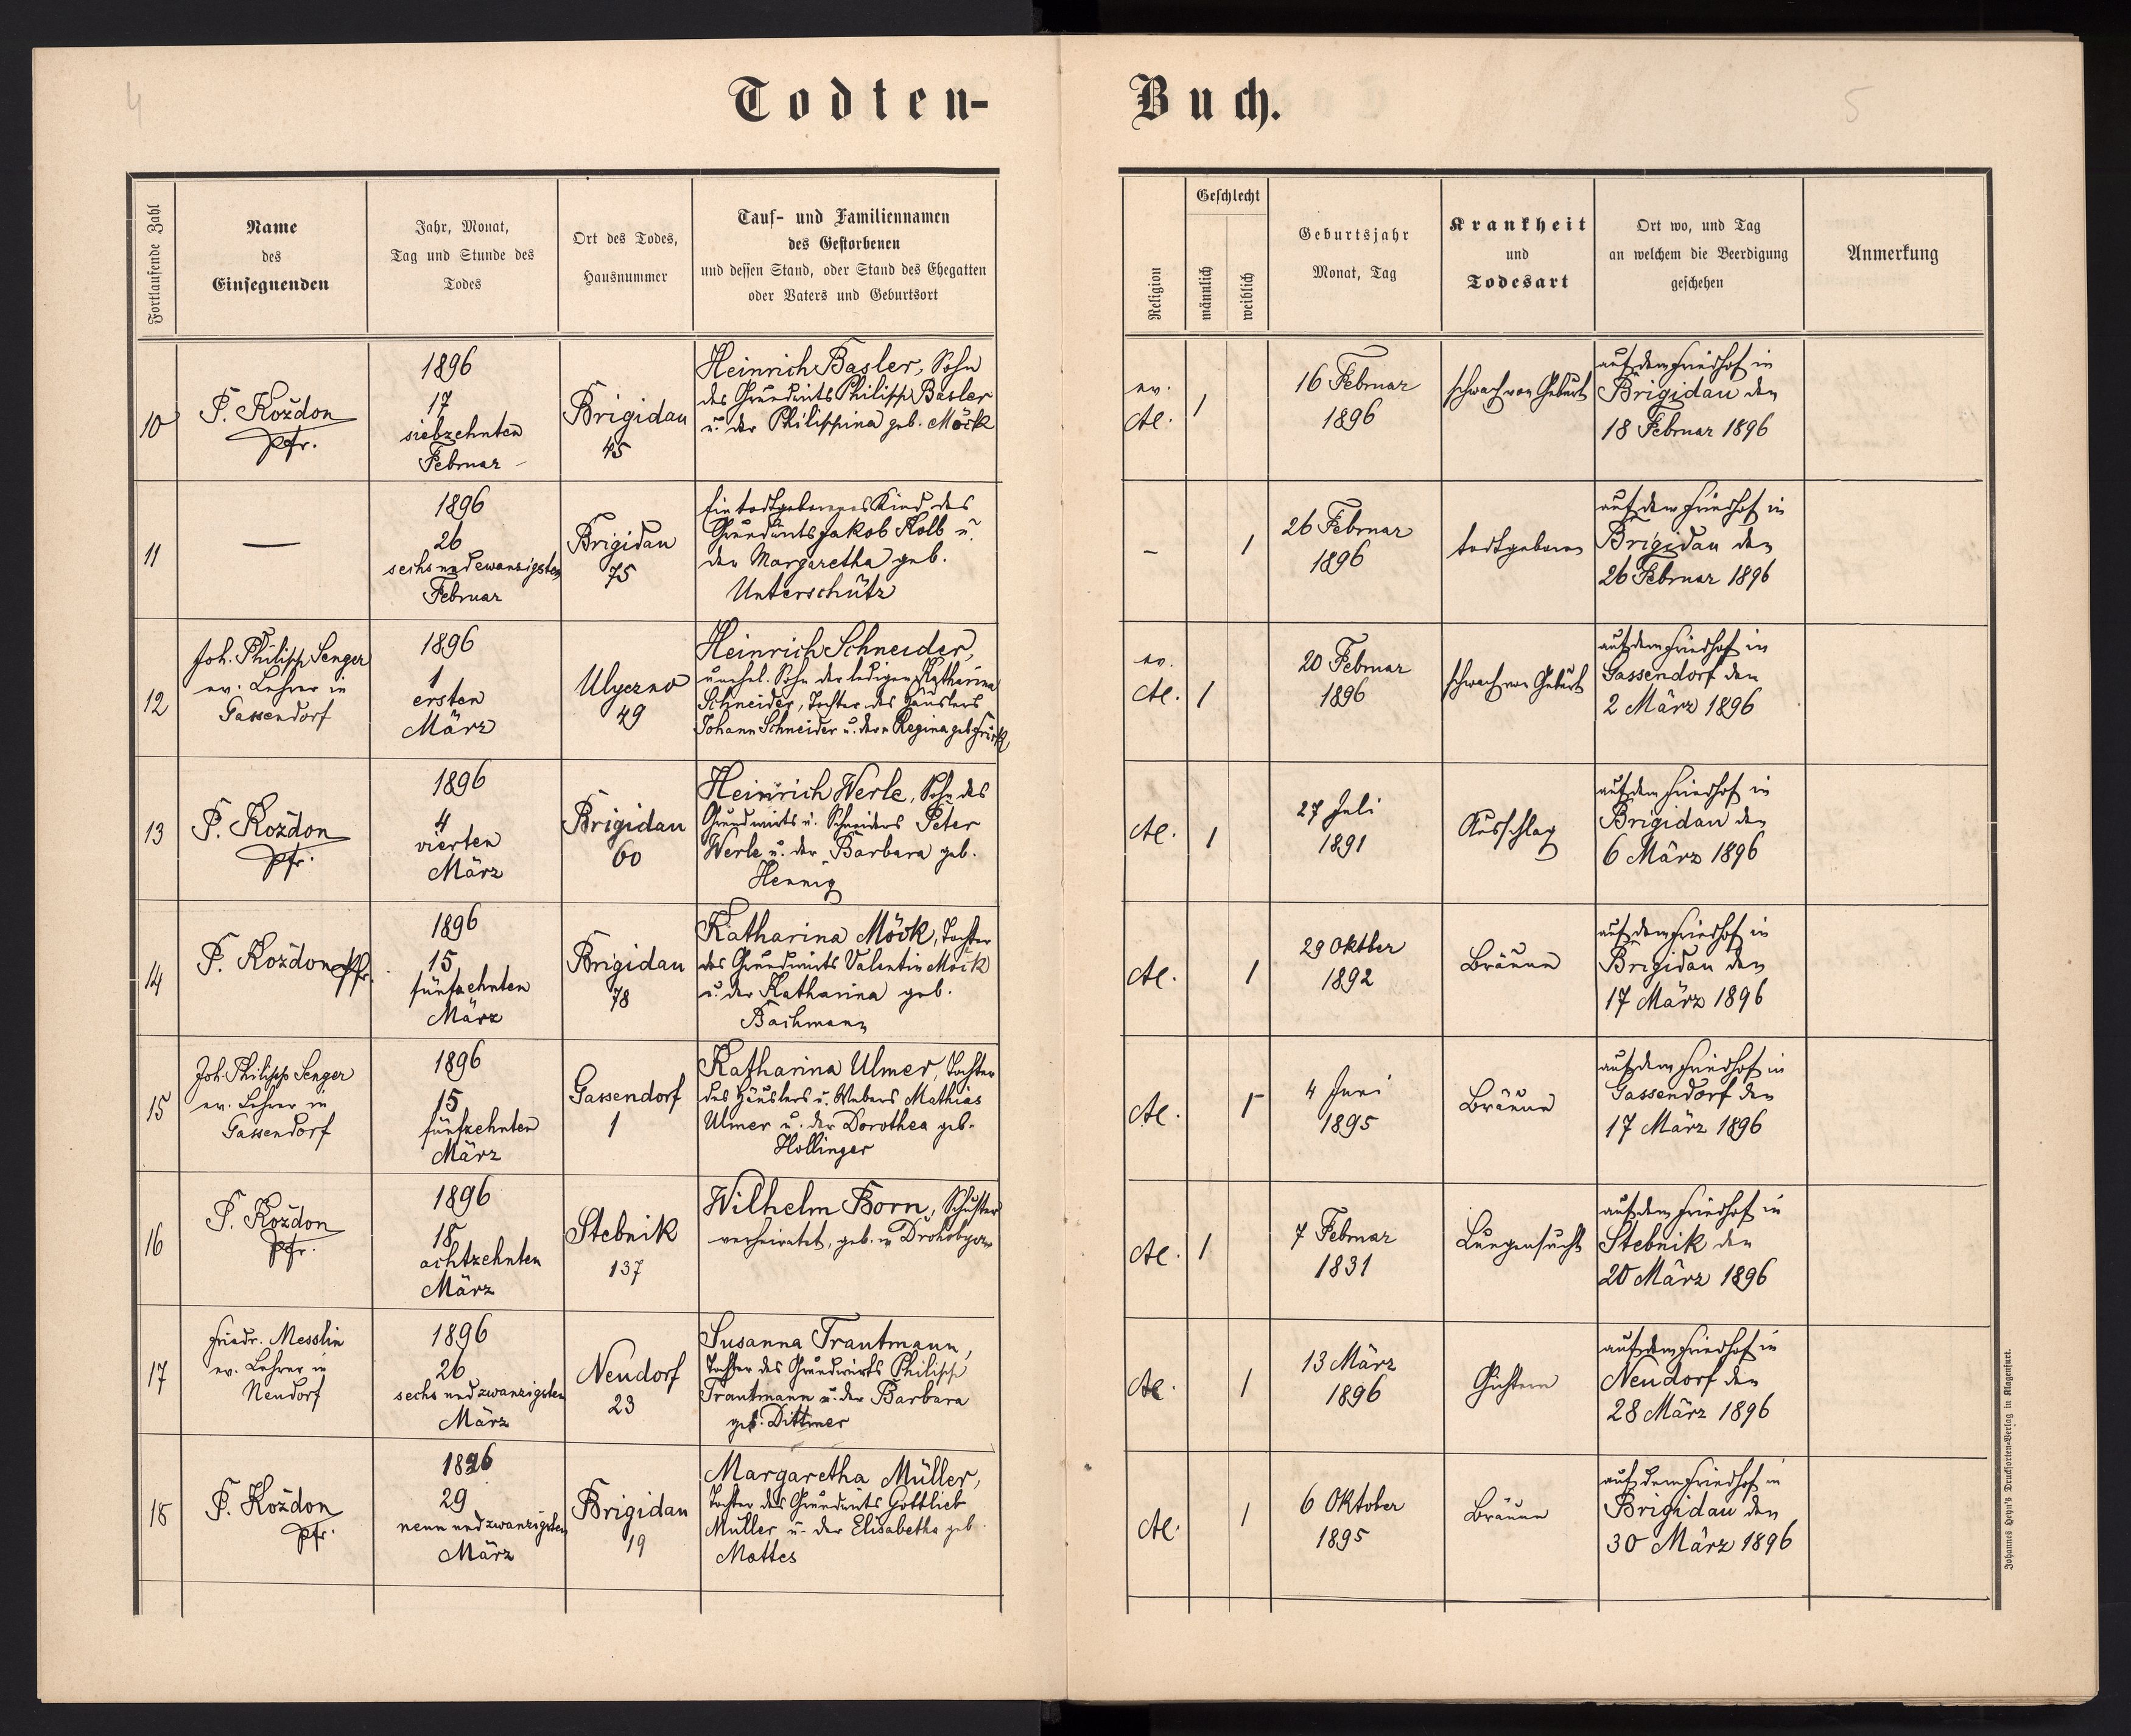 4
Todten-
Fortlaufende Zahl
Name
des
Einsegnenden
Jahr, Monat,
Tag und Stunde des
Todes
Ort des Todes,
Hausnummer
Tauf- und Familiennamen
des Gestorbenen
und dessen Stand, oder Stand des Ehegatten
oder Vaters und Geburtsort
10
P. Kozdon
Pfr.
1896
17
siebzehnten
Februar
Brigidau
45
Heinrich Basler, Sohn
des Grundwirts Philipp Basler
u. der Philippina geb. Möck
11
—
1896
26
sechsundzwanzigsten
Februar
Brigidau
75
Ein todtgeborenes Kind des
Grundwirts Jakob Kolb u.
der Margaretha geb.
Unterschütz
12
Joh. Philipp Senger
ev. Lehrer in
Gassendorf
1896
1
ersten
März
Ulyczno
49
Heinrich Schneider,
unehel. Sohn der ledigen Katharina
Schneider, Tochter des Häuslers
Johann Schneider u. der Regina geb.
13
P. Kozdon
Pfr.
1896
4
vierten
März
Brigidau
60
Heinrich Werle, Sohn des
Grundwirts u. Schneiders Peter
Werle u. der Barbara geb.
Hennig
14
P. Kozdon Pfr.
1896
15
fünfzehnten
März
Brigidau
78
Katharina Möck, Tochter
des Grundwirts Valentin Möck
u. der Katharina geb.
Bachmann
15
Joh. Philipp Senger
ev. Lehrer in
Gassendorf
1896
15
fünfzehnten
März
Gassendorf
1
Katharina Ulmer, Tochter
des Häuslers u. Webers Mathias
Ulmer u. der Dorothea geb.
Hollinger
16
P. Kozdon
Pfr.
1896
18
achtzehnten
März
Stebnik
137
Wilhelm Born, Schuster
verheiratet, geb. in Drohobycz
17
Friedr. Messlin
ev. Lehrer in
Neudorf
1896
26
sechsundzwanzigsten
März
Neudorf
23
Susanna Trautmann,
Tochter des Grundwirts Philipp
Trautmann u. der Barbara
geb. Dittmer
18
P. Kozdon
Pfr.
1896
29
neunundzwanzigsten
März
Brigidau
19
Margaretha Müller,
Tochter des Grundwirts Gottlieb
Müller u. der Elisabetha geb.
Mottes
Buch.
5
Religion
Geschlecht
männlich
weiblich
Geburtsjahr
Monat, Tag
Krankheit
und
Todesart
Ort wo, und Tag
an welchem die Beerdigung
geschehen
Anmerkung
ev.
AC.
1
16 Februar
1896
schwach von Geburt
auf dem Friedhof in
Brigidau den
18 Februar 1896
–
1
26 Februar
1896
todtgeboren
auf dem Friedhof in
Brigidau den
26 Februar 1896
ev.
AC.
1
20 Februar
1896
schwach von Geburt
auf dem Friedhof in
Gassendorf den
2 März 1896
AC.
1
27 Juli
1891
Ausschlag
auf dem Friedhof in
Brigidau den
6 März 1896
AC.
1
29 Oktber
1892
Bräune
auf dem Friedhof in
Brigidau den
17 März 1896
AC.
1
4 Juni
1895
Bräune
auf dem Friedhof in
Gassendorf den
17 März 1896
AC.
1
7 Februar
1831
Lungensucht
auf dem Friedhof in
Stebnik den
20 März 1896
AC.
1
13 März
1896
Gichtern
auf dem Friedhof in
Neudorf den
28 März 1896
AC.
1
6 Oktober
1895
Bräune
auf dem Friedhof in
Brigidau den
30 März 1896
Johannes Heyn's Drucksorten-Verlag in Klagenfurt.